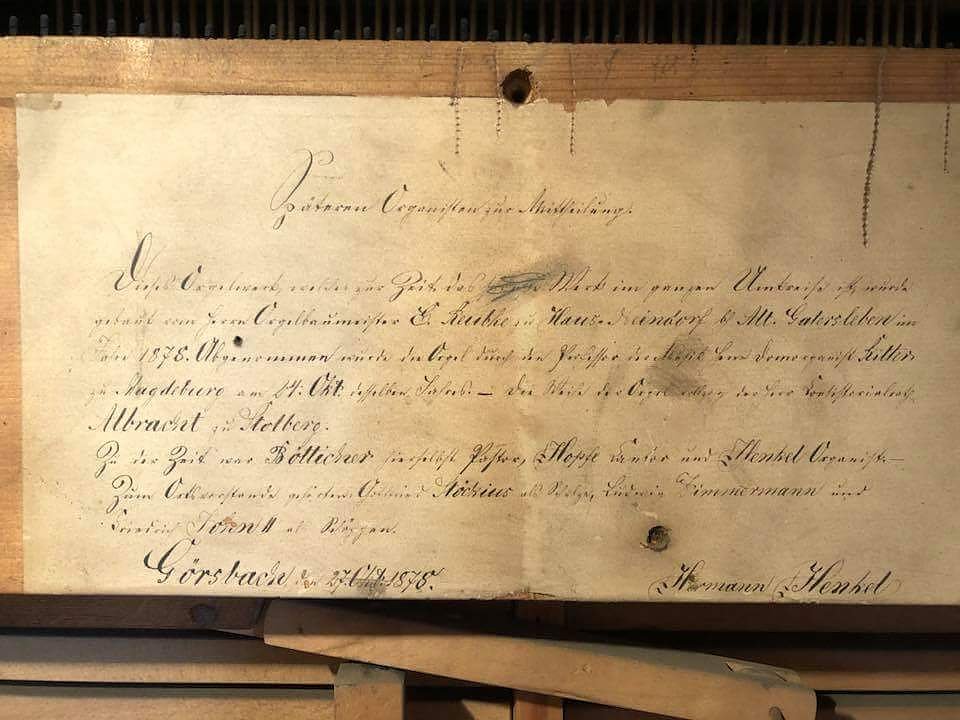 Späteren Organisten zur Mittheilung.
Dieses Orgelwerk, welches zur Zeit das Werk im ganzen Umkreise ist, wurde
gebaut vom Herrn Orgelbaumeister E. Reubke zu Haus-Neindorf b/ Alt. Gatersleben im
Jahre 1878. Abgenommen wurde die Orgel durch den Professor der Musik Herr Domorganist Ritter
zu Magdeburg am 24. Okt. desselben Jahres. – Die Weihe der Orgel vollzog der Herr Konsistorialrath
Albracht zu Stolberg.
Zu der Zeit war Bötticher hierselbst Pastor, Hopfe Cantor und Henkel Organist. –
Zum Ortsvorstande gehörten: Gottfried Stöckius als Schulze, Ludwig Zimmermann und
Friedrich II als Schöppen.
Görsbach den 27. Okt. 1878. Hermann Henkel